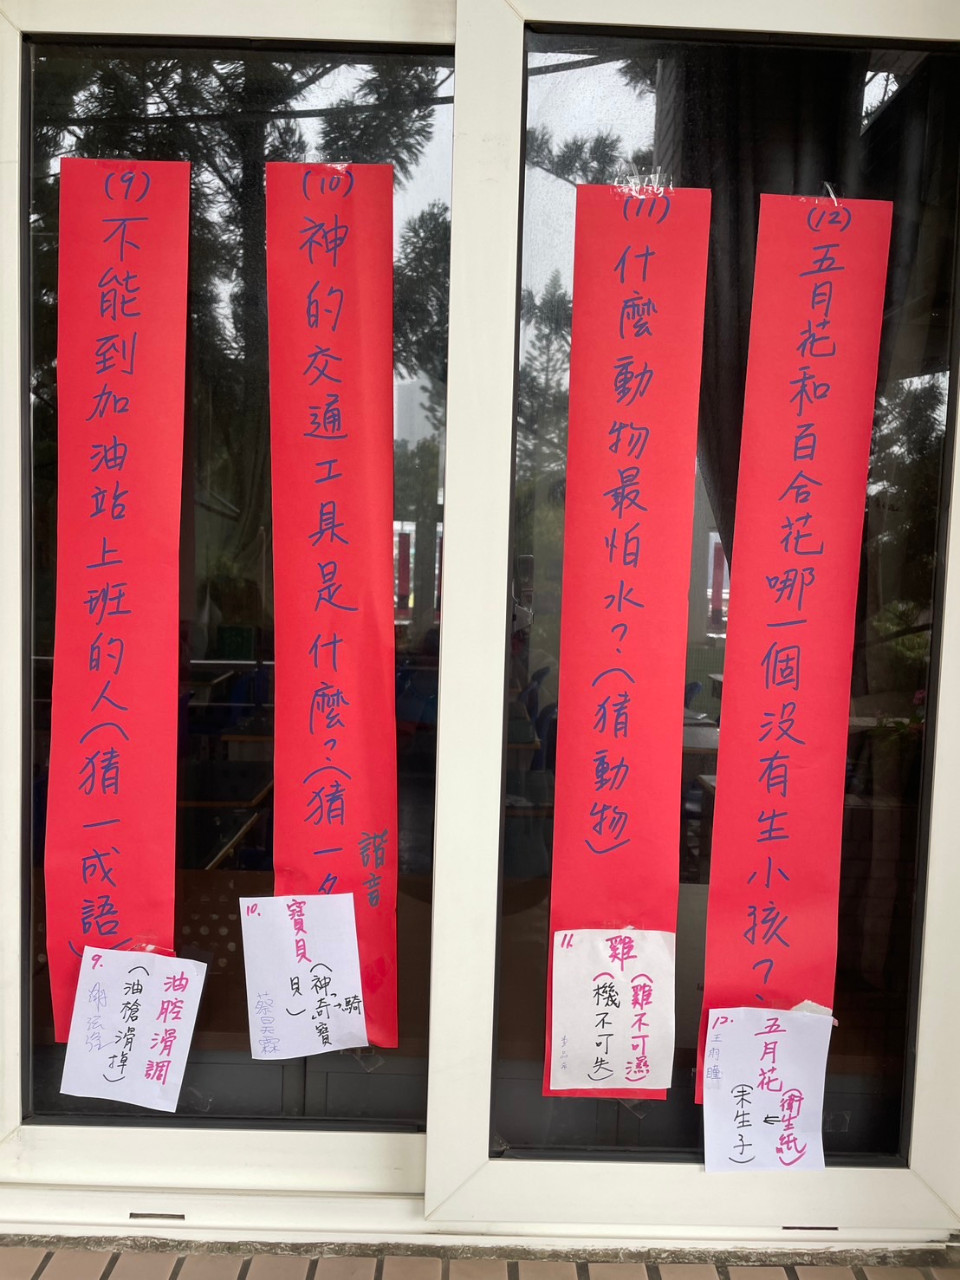 (9)不能到加油站上班的人(猜一成語)
9.
油腔滑調
(油槍滑掉)
(10)神的交通工具是什麼?(猜一名
諧音
10.
寶貝
(神奇寶貝)
→騎
蔡昊霖
(11)什麼動物最怕水?(猜動物)
11.
雞
(雞不可濕)
(機不可失)
(12)五月花和百合花哪一個沒有生小孩?
12.
五月花
(衛生紙)
←
(未生子)
王羽瞳